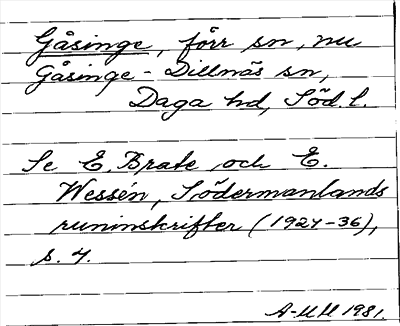 Gåsinge, förr sn, nu
Gåsinge-Dillnäs sn,
Daga hd, Söd.l.
Se E. Brate och E.
Wessén, Södermanlands
runinskrifter (1924-36),
s. 4.
A-MM 1981.